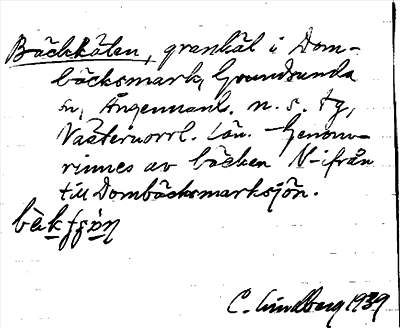 Bäckkälen, grankäl i Dom-
bäcksmark, Grundsunda
sn, Ångermanl. n. s. tg,
Västernorrl. län. Genom-
rinnes av bäcken N-ifrån
till Dombäcksmarksjön.
C. Lindberg 1939